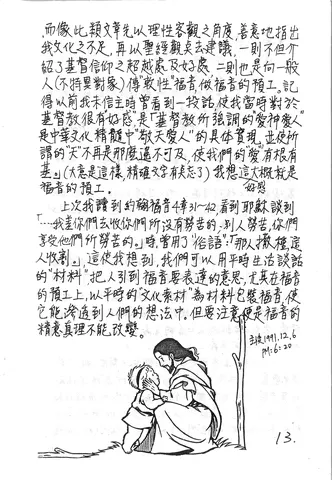 而像比類文章先以理性客觀之角度,善意地指出
我文化之不足,再以聖經觀点去建議,一則不但介
紹了基督信仰之超越處及好處 二則也是向一般
人(不特異對象)傳"軟性"福音,做"福音"的預工。記
得以前我未信主時曾看到一段話使我當時對於
基督教很有好感,是「基督教所強調的愛神愛人"
是中華文化精髓中"敬天愛人"的具體實現,並使所
謂的"天"不再是那麼遙不可及,使我們的愛有根有
基。(大意是這樣,精確文字有点忘了)我想這大概就是
福音的預工。
好感
上次我讀到約翰福音4章31~42,看到耶穌談到
「…我差你們去收你們所沒有勞苦的,別人勞苦,你們
享受他們所勞苦的。」時,曾用了"俗語":「那人撒種,這
人收割」,這使我想到,我們可以用平時生活談話
的"材料",把人引到福音要表達的意思,尤其在福音
的預工上,以平時的"文化素材"為材料包裝福音,使
它能滲透到人們的想法中,但要注意便是福音的
精意真理不能改變。
主後1991.12.6
PM:6:20
13.